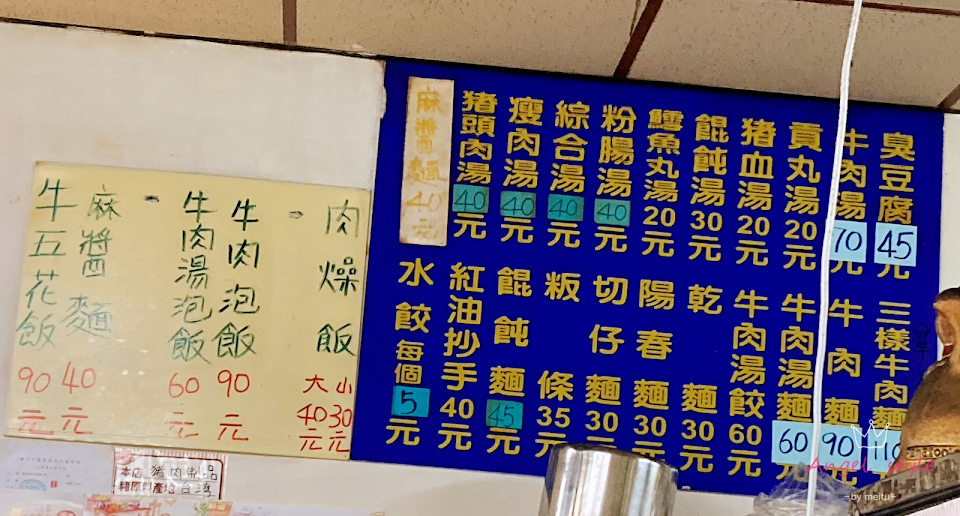 臭豆腐45元
牛肉湯70元
貢丸湯20元
猪血湯20元
餛飩湯30元
鱈魚丸湯20元
粉腸湯40元
綜合湯40元
瘦肉湯40元
猪頭肉湯40元
麻醬麵40元
三樣牛肉麵
牛肉麵90元
牛肉湯麵60元
牛肉湯餃60元
乾麵30元
陽春麵30元
切仔麵30元
粄條35元
餛飩麵45元
紅油抄手40元
水餃每個5元
肉燥飯大40元小30元
牛肉泡飯90元
牛肉湯泡飯60元
麻醬麵40元
牛五花飯90元
本店猪肉製品
豬原料產地台灣
Angel style
~by meitu~